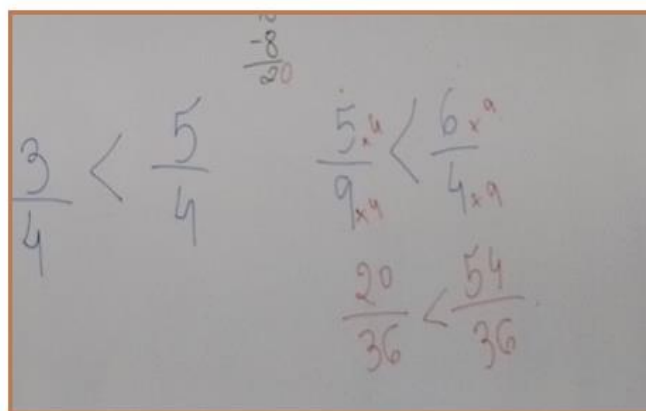 -8
20
3/4 < 5/4
5×4/9×4 < 6×9/4×9
20/36 < 54/36